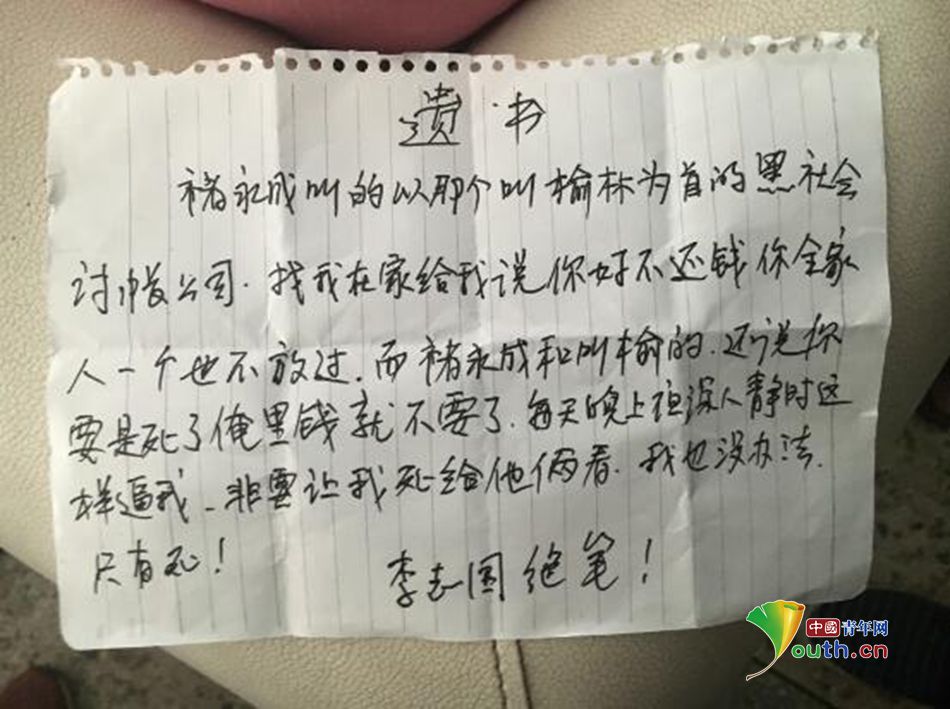 遗书
褚永成叫的以那个叫榆林为首的黑社会
讨帐公司.找我在家给我说你好不还钱你全家
人一个也不放过.而褚永成和叫榆的.还说你
要是死了俺里钱就不要了.每天晚上夜深人静时这
样逼我.非要让我死给他俩看.我也没办法.
只有死!
李志国绝笔!
中國青年网
Youth.cn